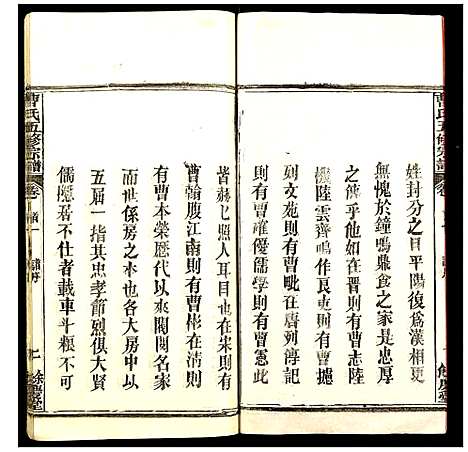 曹氏五修宗譜 卷首一 譜序
姓封分之目平陽復爲漢相更
無愧於鐘鳴鼎食之家是忠厚
之傳乎其他如在晋有曹志
機陸雲齊鳴作良吏有曹攄
列文苑則有曹毘在唐列傳記
則有曹確優儒學則有曹憲此
皆赫匕照人耳目也在宋則有
曹翰廈江南則有曹彬在清則
有曹本榮歷代以來閥閱名家
而世係房之本也各大房中以
五届一指其忠孝節烈俱大賢
儒隱君不仕者載車斗糧不可
曹氏五修宗譜 卷首一 譜序 七 餘慶堂